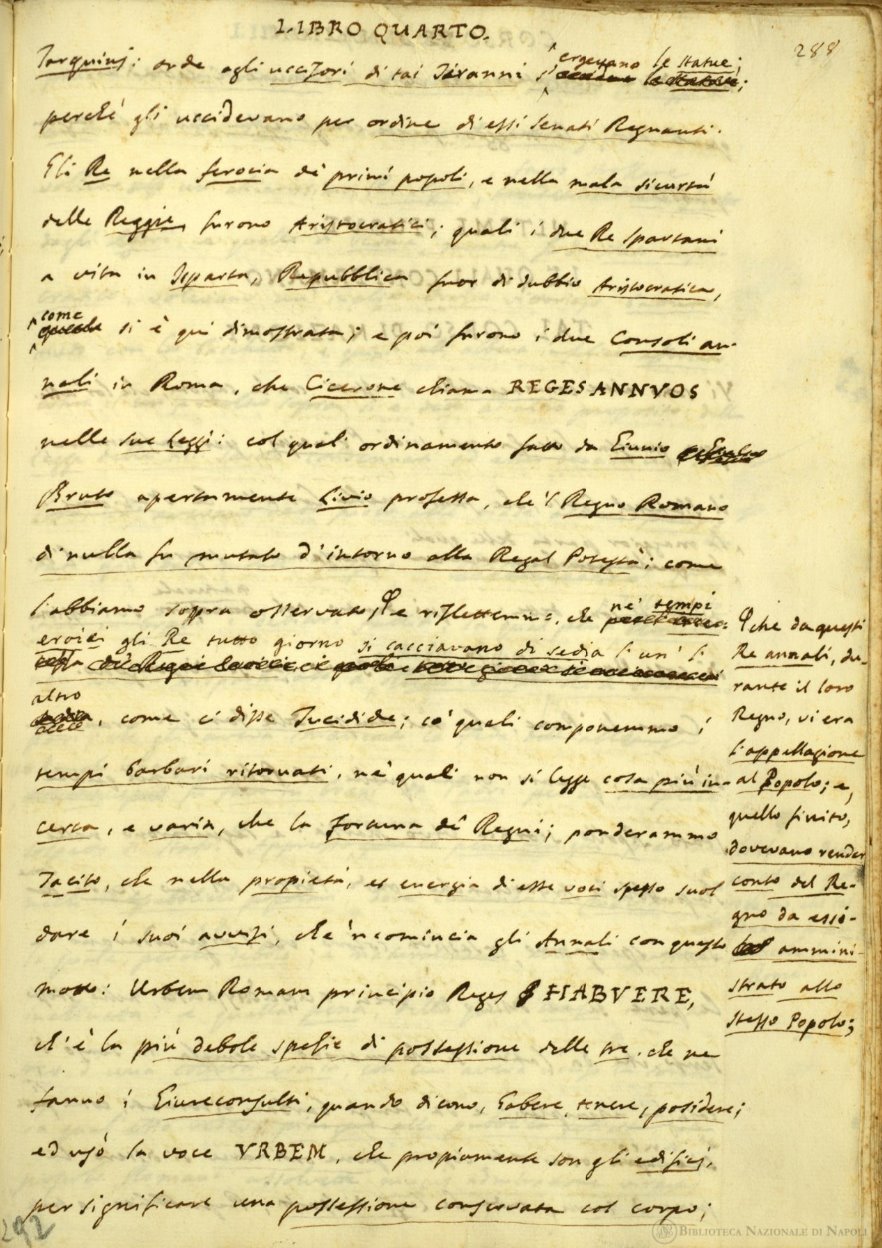 LIBRO QUARTO.
288
Tarquinj: onde agli uccisori di tai Tiranni s'ergevano le statue;
perchè gli uccidevano per ordine di essi Senati Regnanti.
Gli Re nella ferocia de' primi popoli, e nella mala sicurtà
delle Reggie, furono Aristocratici; quali i due Re Spartani
a vita in Isparta, Repubblica fuor di dubbio Aristocratica,
come si è qui dimostrata; e poi furono i due Consoli an-
nali in Roma, che Cicerone chiama REGES ANNVOS
nelle sue Leggi: col qual ordinamento fatto da Giunio
Bruto apertamente Livio professa, che 'l Regno Romano
di nulla fu mutato d'intorno alla Regal Potestà; come
l'abbiamo sopra osservato, e riflettemmo, che ne' tempi
eroici gli Re tutto giorno si cacciavano di sedia l'un' l'
altro, come ci disse Tucidide; co' quali componemmo i
tempi barbari ritornati, ne' quali non si legge cosa più in-
certa, e varia, che la Fortuna de' Regni; ponderammo
Tacito, che nella propietà, et energia di esse voci spesso suol
dare i suoi avvisi, che 'ncomincia gli Annali con questo
motto: Urbem Romam principio Reges HABVERE,
ch'è la più debole spesie di possessione delle tre, che ne
fanno i Giureconsulti, quando dicono, habere, tenere, posidere;
ed usò la voce VRBEM, che propiamente son gli edificj,
per significare una possessione conservata col corpo;
che da questi
Re annali, du-
rante il loro
Regno, vi era
l'appellagione
al Popolo; e,
quello finito,
dovevano render
conto del Re-
gno da essi
ammini-
strato allo
stesso Popolo;
292
BIBLIOTECA NAZIONALE DI NAPOLI